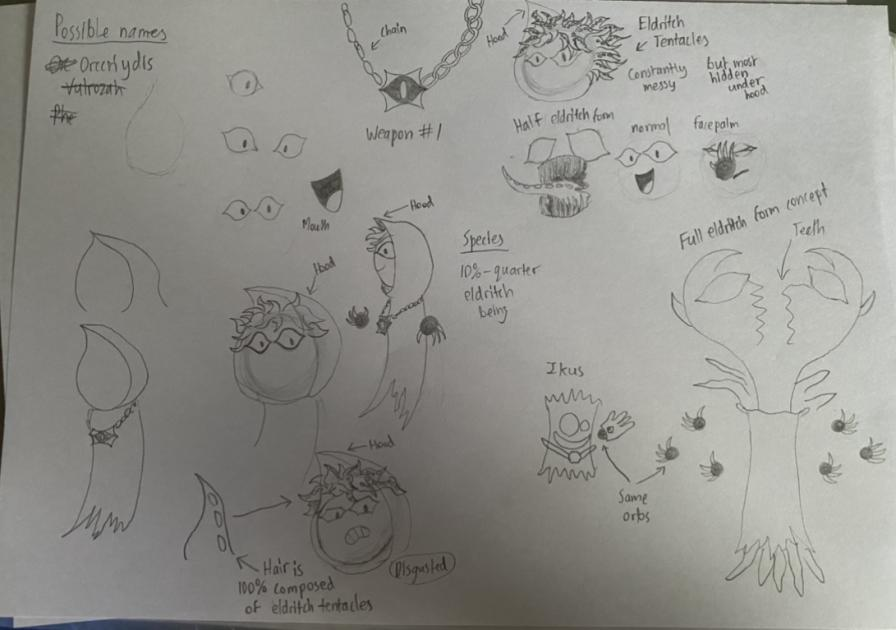 Possible names
Orcchydis
Valrozah
Phe
Chain
Weapon #1
Mouth
Hood
Eldritch
Tentacles
Constantly
messy
but most
hidden
under
hood
Half eldritch form
normal
facepalm
Hood
Species
10%-quarter
eldritch
being
Full eldritch form concept
Teeth
Hood
Ikus
Same
orbs
Hood
Disgusted
Hair is
100% composed
of eldritch tentacles